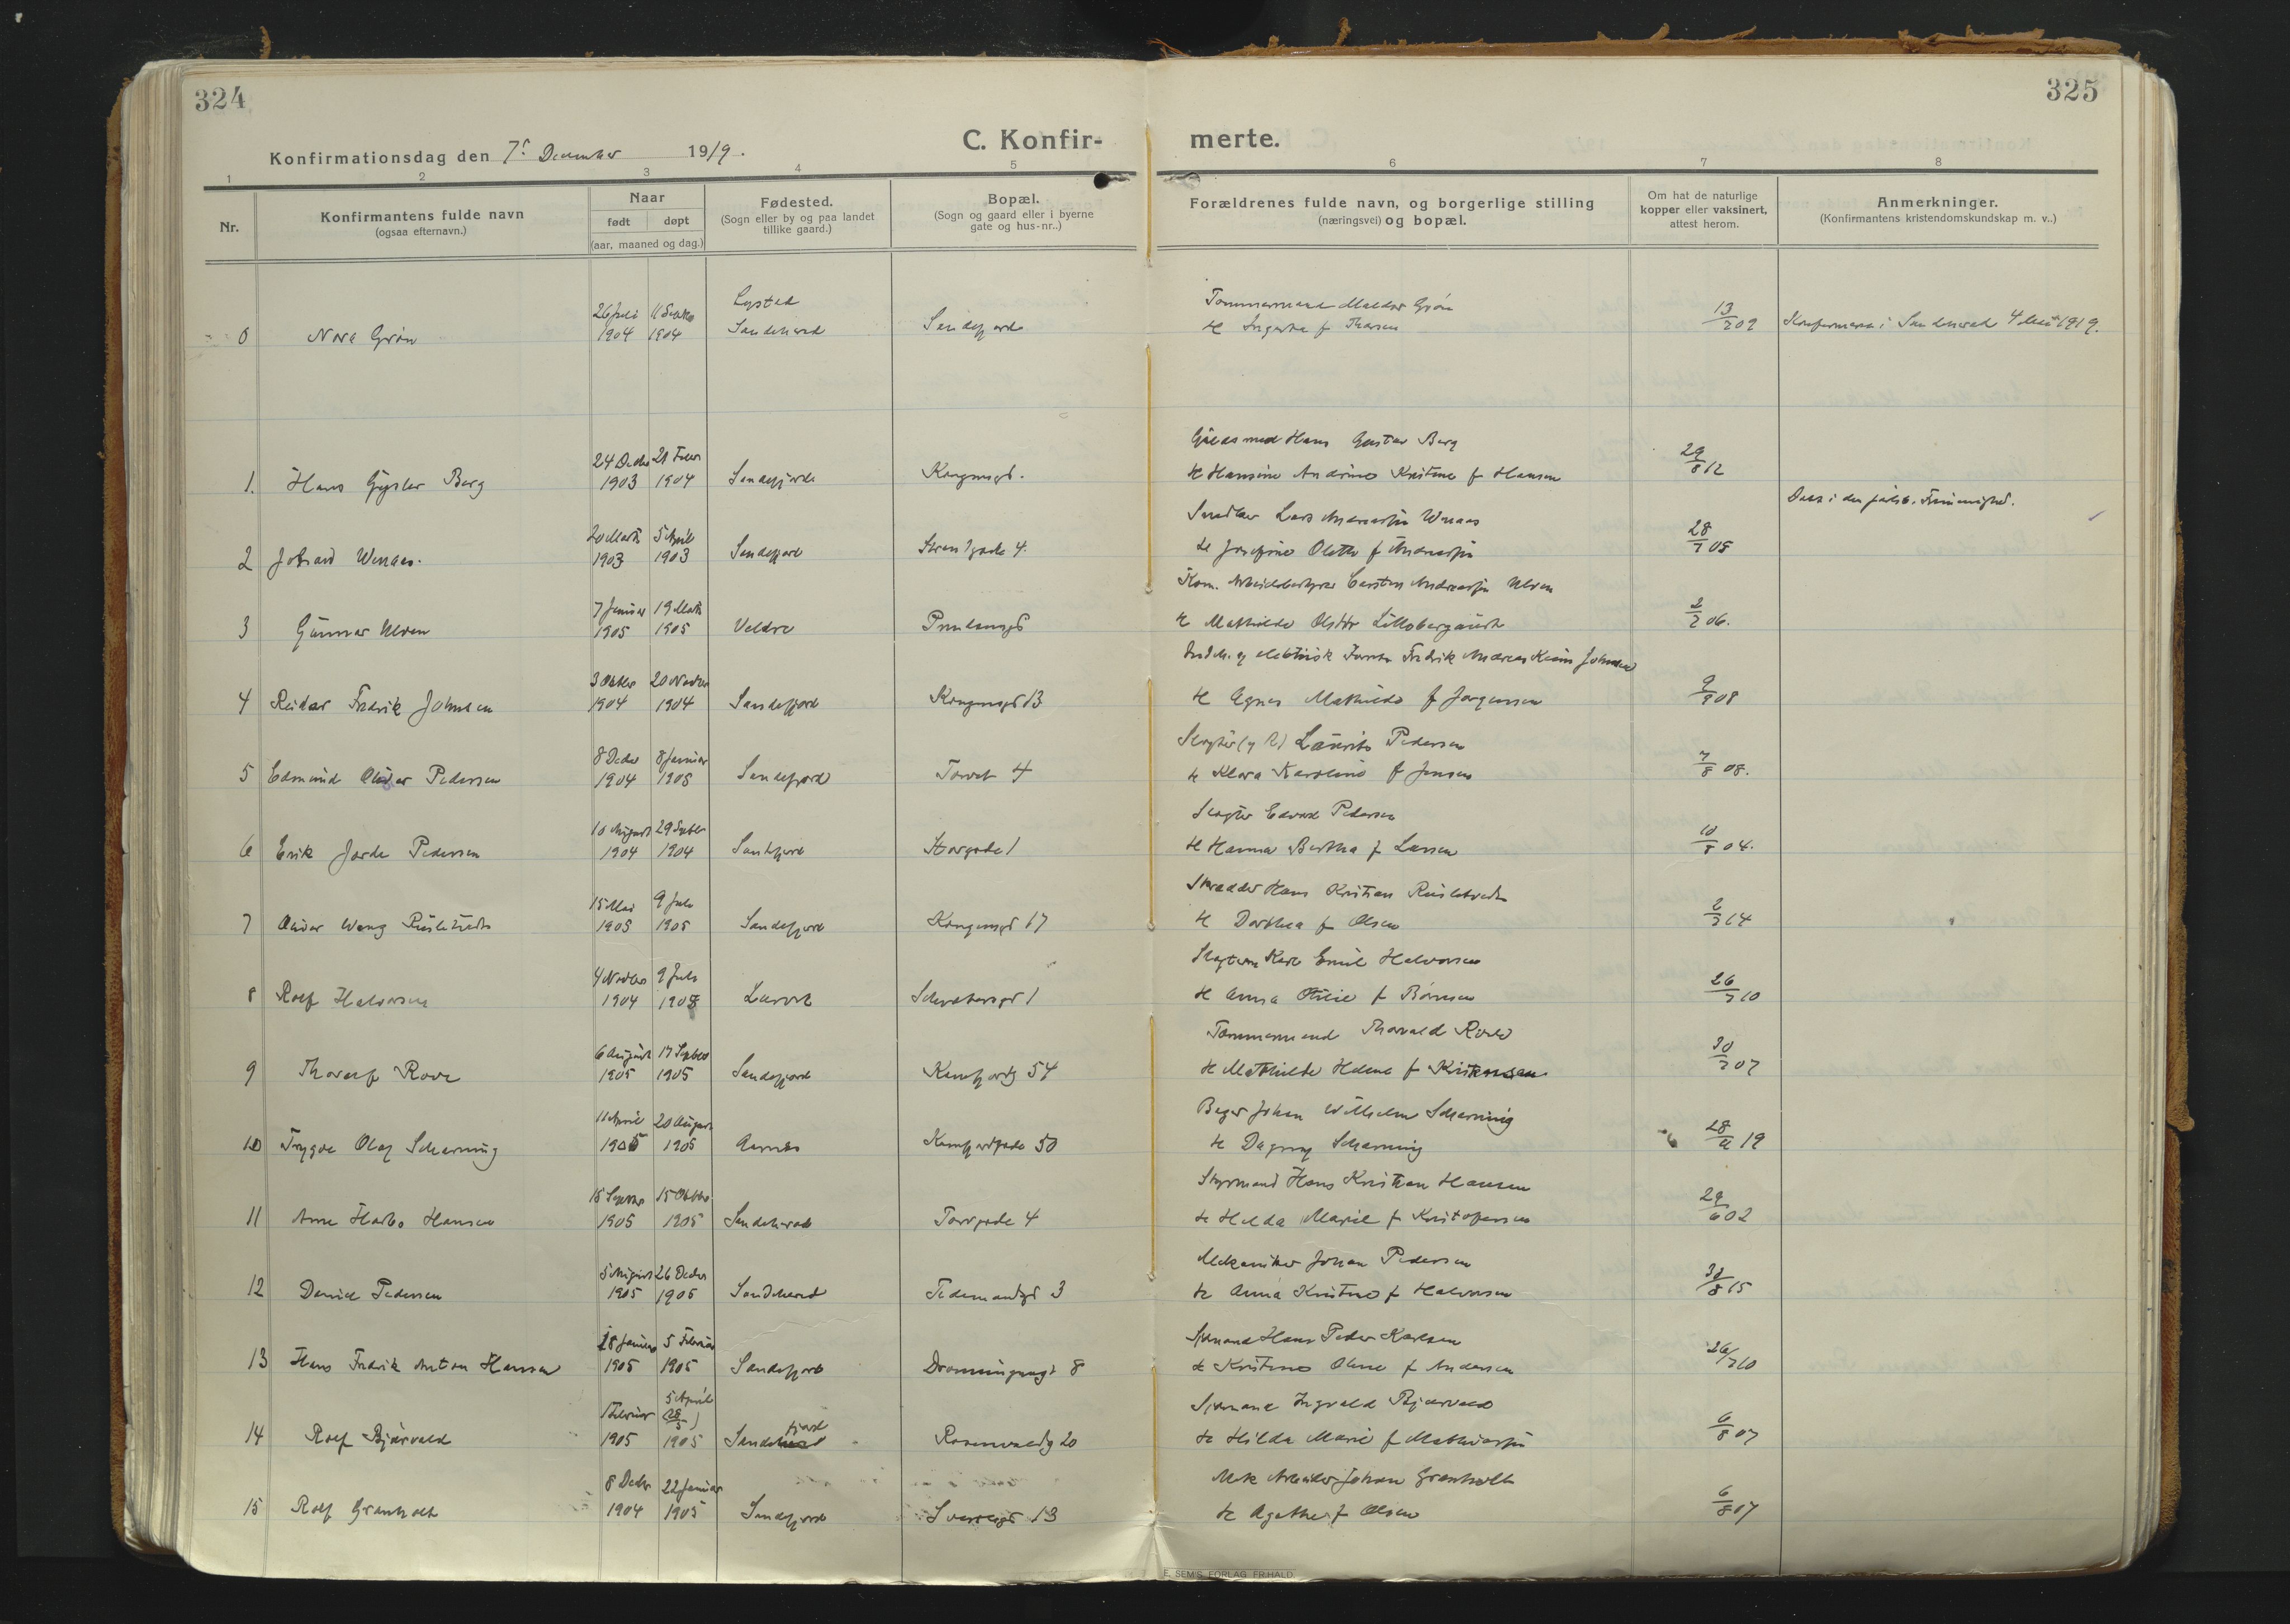 324
325
C. Konfir-
merte.
Konfirmationsdag den 7' December 1919.
1 2 3 4 5 6 7 8
Nr.
Konfirmantens fulde navn
(ogsaa efternavn.)
Naar
født døpt
(aar, maaned og dag.)
Fødested.
(Sogn eller by og paa landet
tillike gaard.)
Bopæl.
(Sogn og gaard eller i byerne
gate og hus-nr..)
Forældrenes fulde navn, og borgerlige stilling
(næringsvei) og bopæl.
Om hat de naturlige
kopper eller vaksinert,
attest herom.
Anmerkninger.
(Konfirmantens kristendomskundskap m. v..)
26 Juli 11 Septbr Lystad Tømmermand Grøn
0 Nora Grøn 1904 1904 Sandeherred Sandefjord f Thorsen 13/2 09 i Sandeherred 1919.
24 Decbr 21 Febr Hans Gustav Berg
1. Hans Berg 1903 1904 Sandefjord Kongensgt. & Hansine Andrine Kristine f Hansen 29/8 12
Døbt i den
20 Marts 5 April Lars
2 1903 1903 Sandefjord Strandgade 4. & Josefine f 28/7 05
Kom. Carsten Ulven
7 Januar 19 Marts
3 Gunnar Ulven 1905 1905 Veldre & Mathilde Olsdtr 2/2 06.
og elektrisk Fredrik Andreas Johnsen
3 Oktbr 20 Novbr
4 Reidar Fredrik Johnsen 1904 1904 Sandefjord Kongensgt 13 & Agnes Mathilde f Jørgensen 9/9 08
8 Decbr 8 Januar Slagter Laurits Pedersen
5 Edmund Oliver Pedersen 1904 1905 Sandefjord Torvet 4 & Klara Karoline f Jensen 7/8 08.
10 August 29 Septbr Slagter Edvard Pedersen
6 Erik Jarde Pedersen 1904 1904 Sandefjord Storgade 1 & Hanna Bertha f Larsen 10/8 04.
15 Mai 9 Juli Skrædder Hans Kristian
7 Oliver Wang 1905 1905 Sandefjord Kongensgt 17 & Dorthea f Olsen 2/3 14
4 Novbr 9 Juli Karl Emil Halvorsen
8 Rolf Halvorsen 1904 1905 Larvik 1 & Anna Otilie f 26/3 10
6 August 17 Septbr Tømmermand Thorvald
9 Thoralf Rove 1905 1905 Sandefjord 54 & Mathilde Helene f Kristensen 30/7 07
11 April 20 August Bager Johan Wilhelm Scherning
10 Trygve Olaf Scherning 1905 1905 50 & Dagny Scherning 28/11 19
15 Septbr 15 Oktbr Styrmand Hans Kristian Hansen
11 Arne Hansen 1905 1905 Sandeherred Torvgade 4 & Hilda Marie f Kristofersen 29/6 02
5 August 26 Decbr Mekaniker Johan Pedersen
12 Daniel Pedersen 1905 1905 Sandeherred Tidemandsgt 3 & Anna Kristine f Halvorsen 30/8 15
28 Januar 5 Februar Sjømand Hans Peder Karlsen
13 Hans Fredrik Anton Hansen 1905 1905 Sandefjord Dronningensgt 8 & Kristine Oline f Andersen 26/3 10
5 April
1 Februar (28/5) fjord Sjømand Ingvald Bjærvald
14 Rolf Bjærvald 1905 1905 Sandeherred Rosenvaldsg 20 & Hilda Marie f Mathiassen 6/8 07
8 Decbr 22 Januar Mek Arbeider Johan Granholt
15 Rolf Granholt 1904 1905 Sandefjord 13 & Agathe f Olsen 6/8 07
E. SEM'S FORLAG FR.HALD